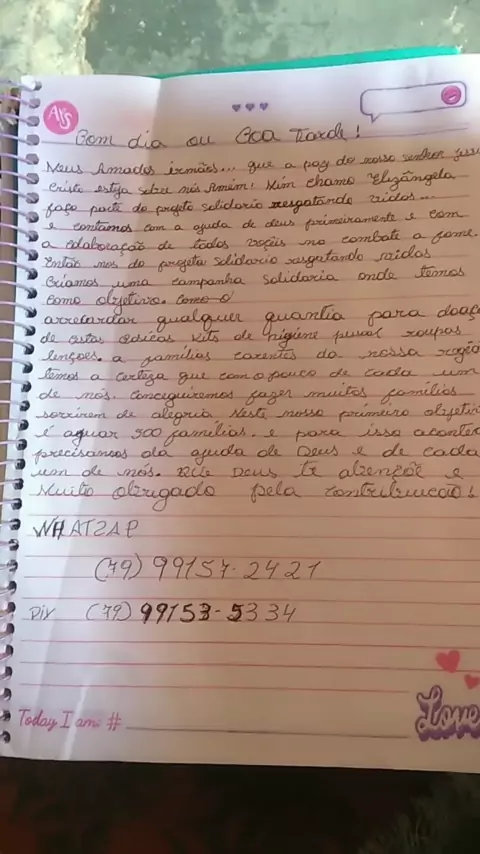 AYS
Bom dia ou Boa Tarde!
Meus Amados irmãos... que a paz do nosso senhor Jesu
Cristo esteja sobre nós Amém! Mim chamo Elizângela
faço parte do projeto solidario resgatando vidas...
e contamos com a ajuda de deus primeiramente e com
a colaboração de todos voçêis no combate a fome.
Então nos do projeto Solidario resgatando vidas
Criamos uma campanha Solidaria onde temos
como objetivo. como o
arrecardar qualquer quantia para doaç
de sestas básicas kits de higiene pesoal roupas
lençoes. a famílias carentes da nossa região
temos a certeza que com o pouco de cada um
de nós. conceguiremos fazer muitas famílias
sorrirem de alegria Neste nosso primeiro objetiv
é ajuar 500 famílias. e para isso acontec
precisamos da ajuda de Deus e de cada
um de nós. Que Deus te abençõe e
Muito obrigado pela contribuição!
WHATZAP
(79) 99157-2421
Pix (79) 99153-5334
Today I am: #
Love